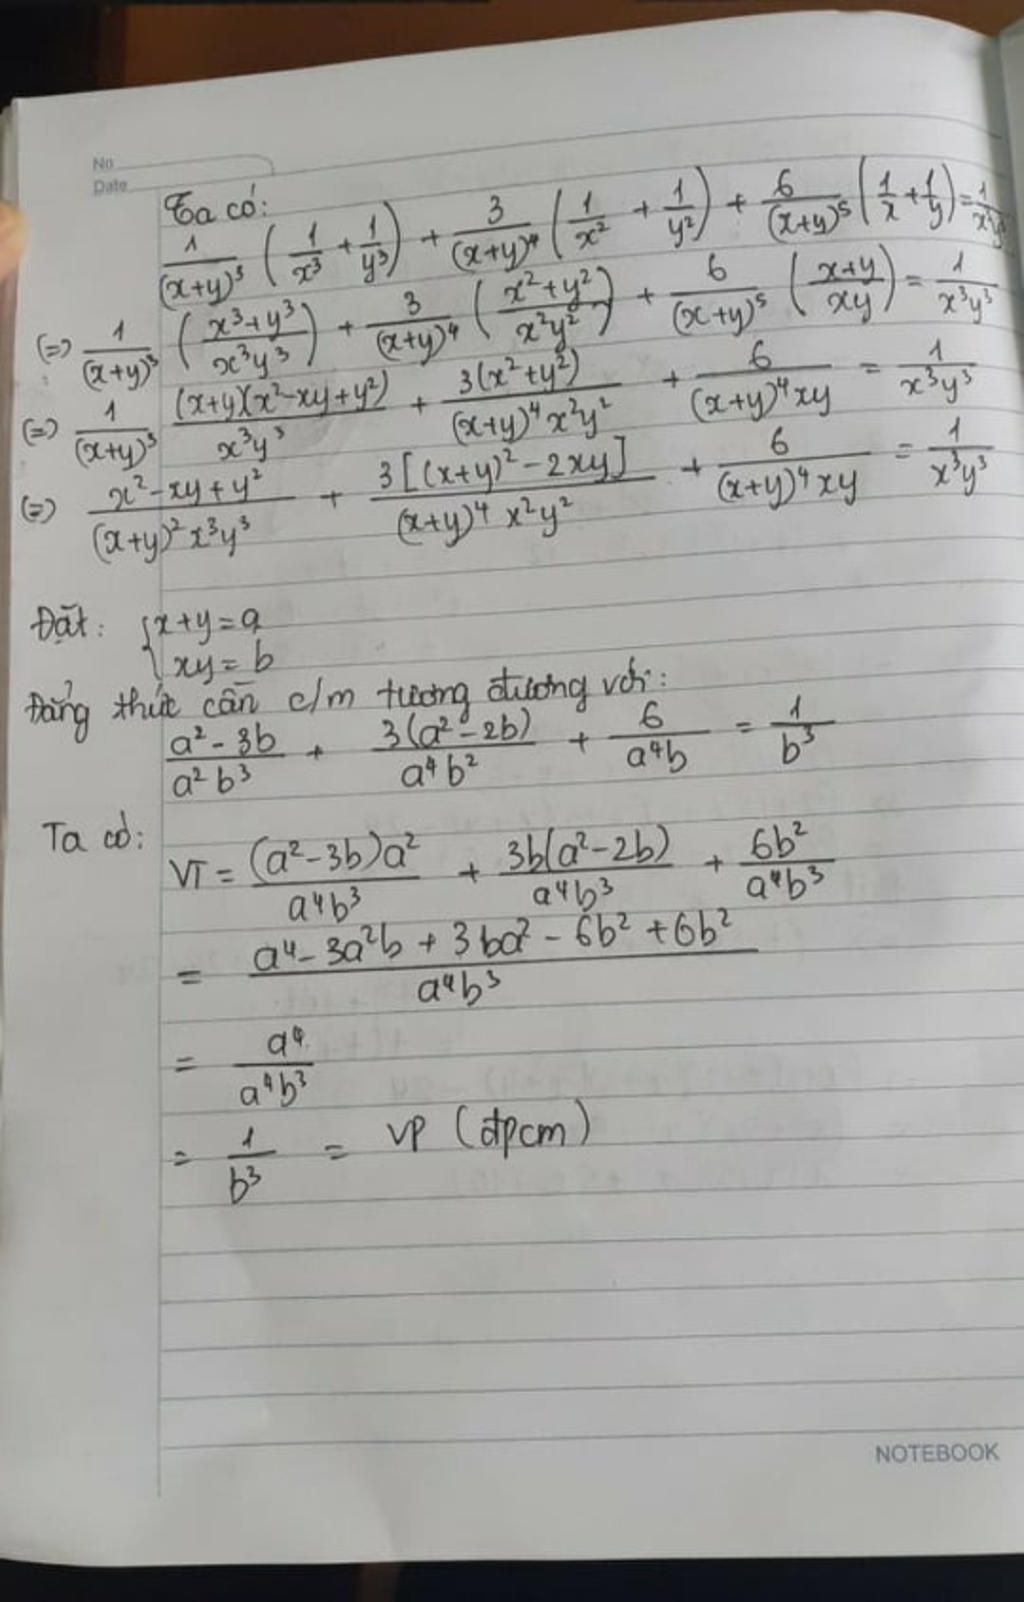 No
Date
Ta có:
1/(x+y)³ (1/x³ + 1/y³) + 3/(x+y)⁴ (1/x² + 1/y²) + 6/(x+y)⁵ (1/x + 1/y) = 1/x³y³
(=) 1/(x+y)³ ((x³+y³)/x³y³) + 3/(x+y)⁴ ((x²+y²)/x²y²) + 6/(x+y)⁵ ((x+y)/xy) = 1/x³y³
(=) 1/(x+y)³ (x+y)(x²-xy+y²)/x³y³ + 3(x²+y²)/(x+y)⁴x²y² + 6/(x+y)⁴xy = 1/x³y³
(=) (x²-xy+y²)/(x+y)²x³y³ + 3[(x+y)²-2xy]/(x+y)⁴x²y² + 6/(x+y)⁴xy = 1/x³y³
Đặt: { x+y=a
xy=b
Đẳng thức cần c/m tương đương với:
(a²-3b)/a²b³ + 3(a²-2b)/a⁴b² + 6/a⁴b = 1/b³
Ta có:
VT = (a²-3b)a²/a⁴b³ + 3b(a²-2b)/a⁴b³ + 6b²/a⁴b³
= (a⁴-3a²b+3ba²-6b²+6b²)/a⁴b³
= a⁴/a⁴b³
= 1/b³ = VP (đpcm)
NOTEBOOK